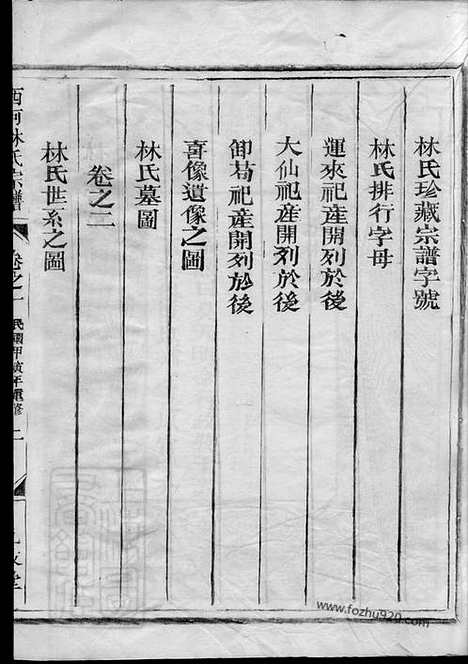 林氏珍藏宗譜字號
林氏排行字母
運來祀產開列於後
大仙祀產開列於後
卸葛祀產開列於後
喜像遺像之圖
林氏墓圖
卷之二
林氏世系之圖
西河林氏宗譜
卷之一
民國甲寅年重修
二
www.fozhu920.com